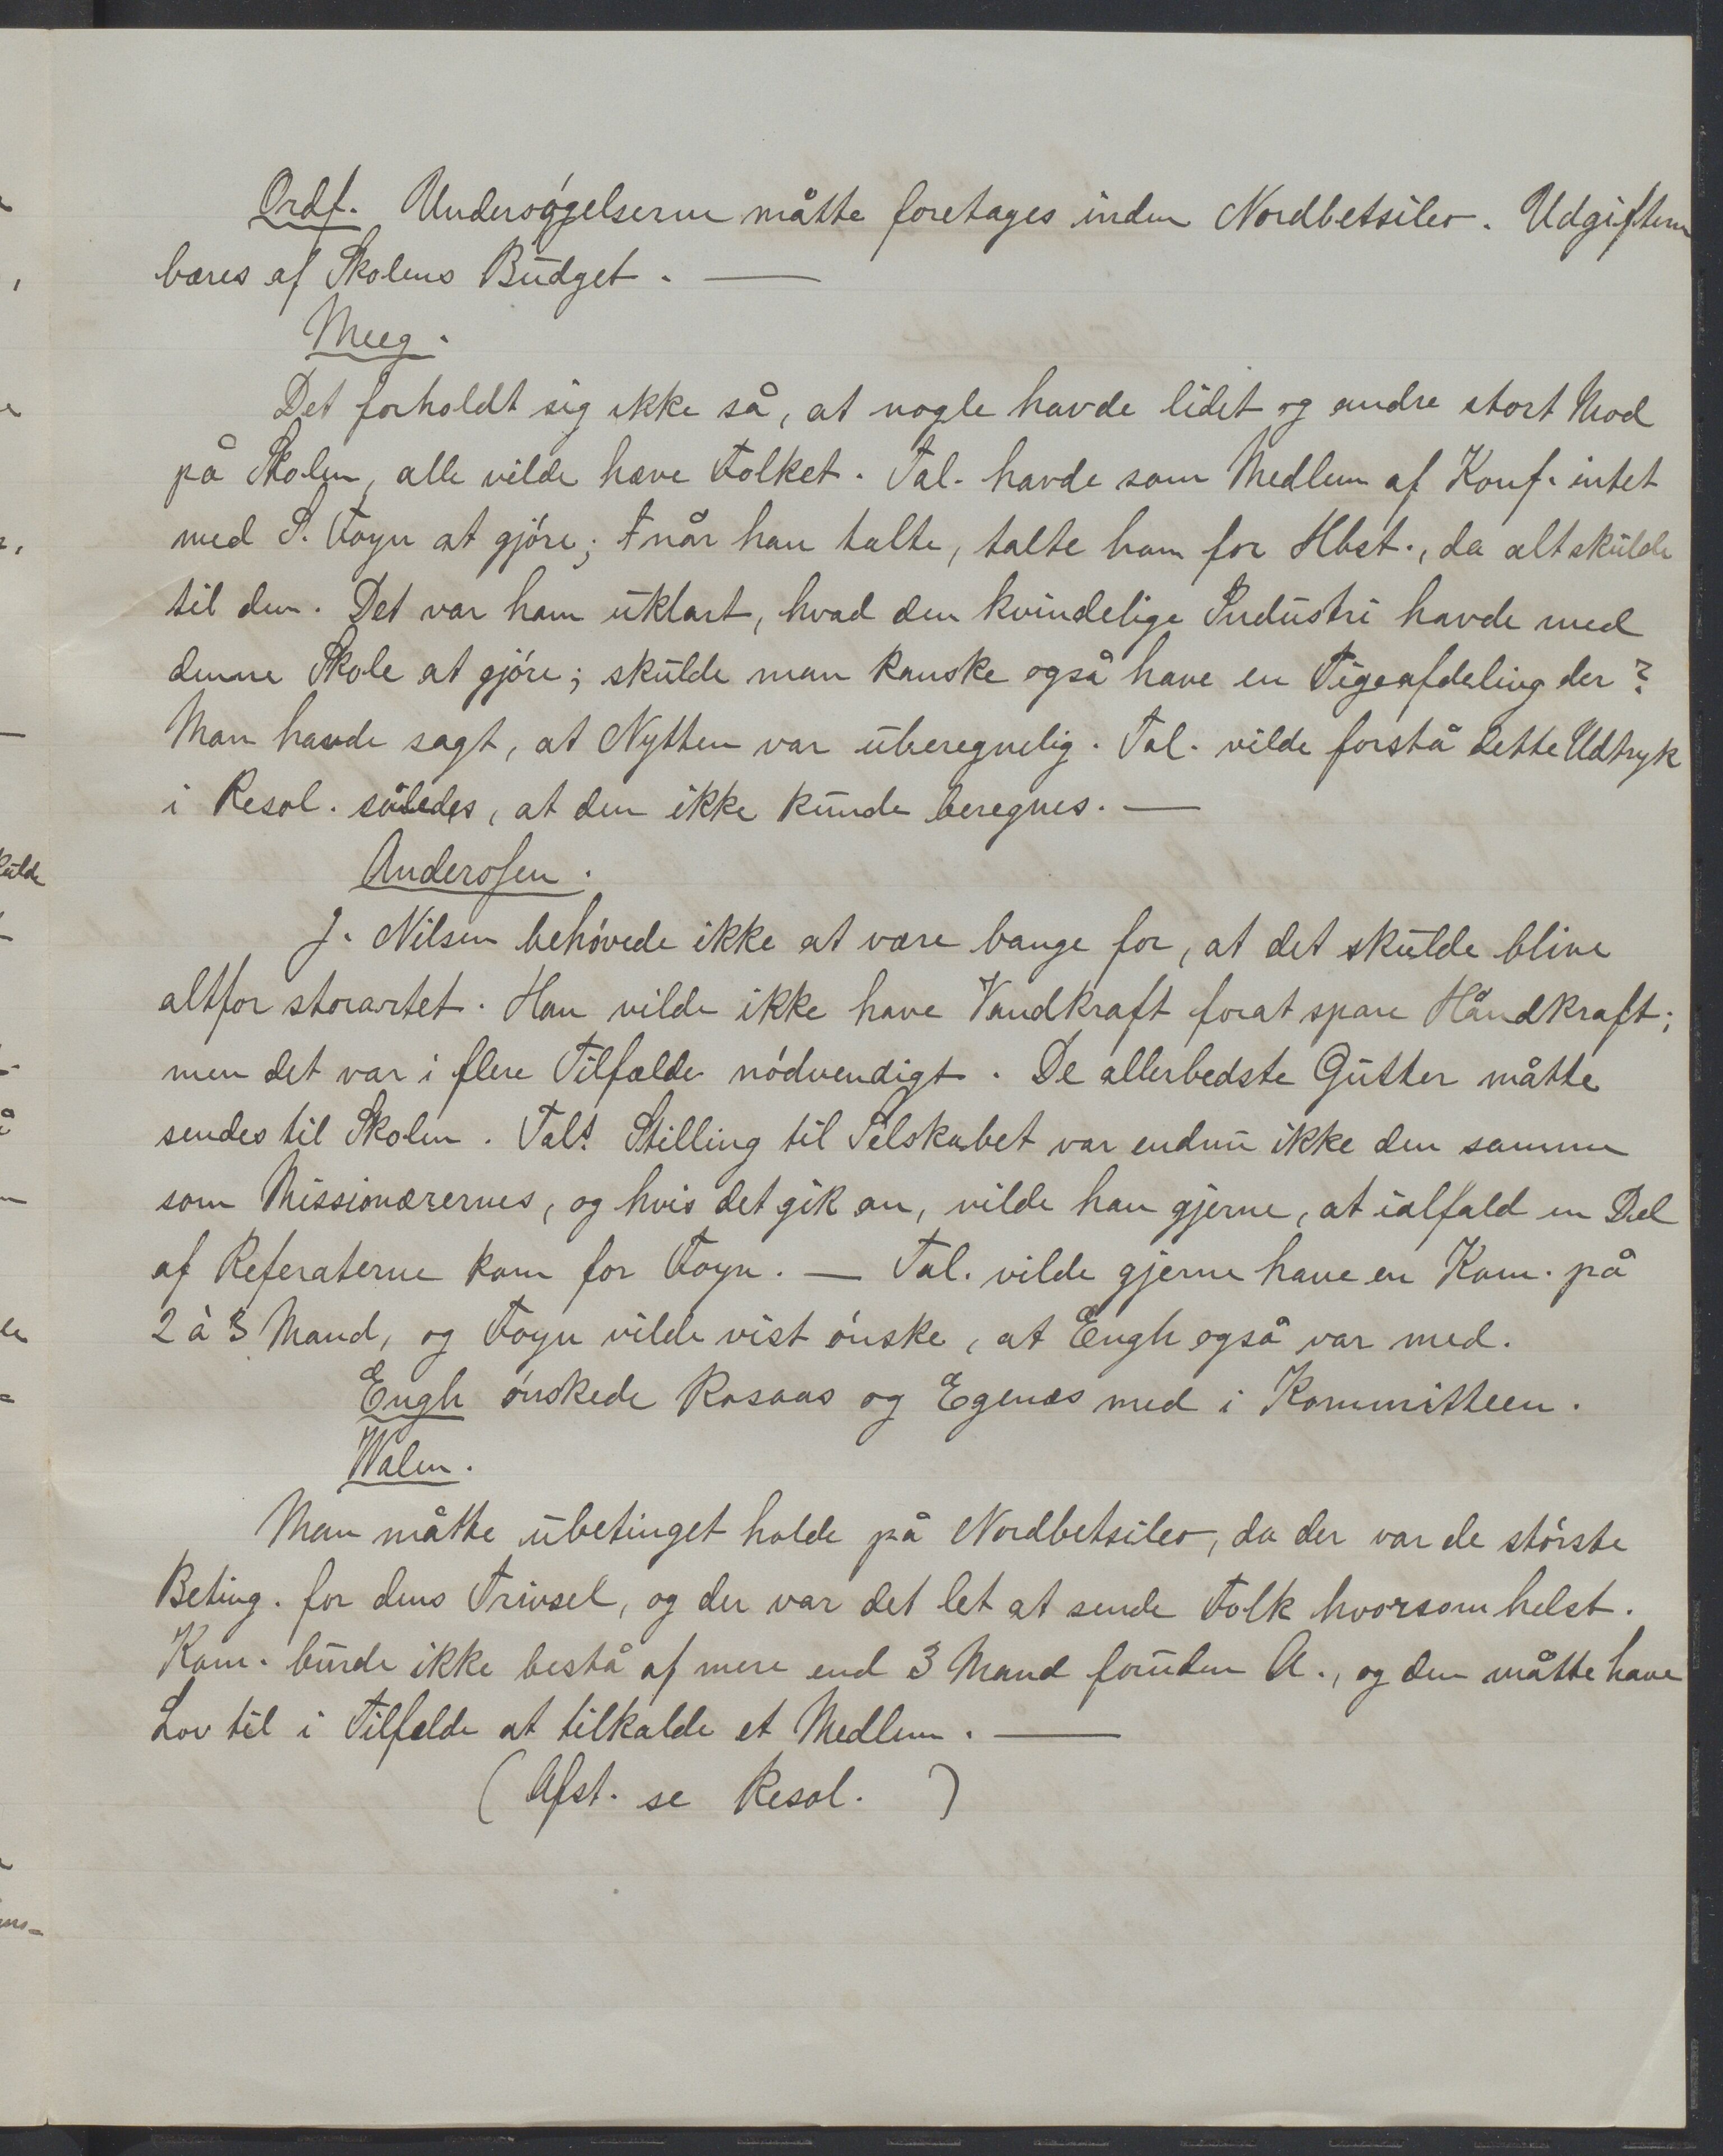 Ordf. Undersøgelserne måtte foretages inden Nordbetsileo. Udgifterne
bæres af Skolens Budget. —
Meeg.
Det forholdt sig ikke så, at nogle havde lidet og andre stort Mod
på Skolen, alle vilde hæve Folket. Tal. havde som Medlem af Konf. intet
med S. Foyn at gjøre; når han talte, talte han for Hbst., da alt skulde
til den. Det var ham uklart, hvad den kvindelige Industri havde med
denne Skole at gjøre; skulde man kanske også have en Pigeafdeling der?
Man havde sagt, at Nytten var uberegnelig. Tal. vilde forstå dette Udtryk
i Resol. således, at den ikke kunde beregnes. —
Anderssen.
J. Nilsen behøvede ikke at være bange for, at det skulde blive
altfor storartet. Han vilde ikke have Vandkraft forat spare Håndkraft;
men det var i flere Tilfælde nødvendigt. De allerbedste Gutter måtte
sendes til Skolen. Tals Stilling til Selskabet var endnu ikke den samme
som Missionærernes, og hvis det gik an, vilde han gjerne, at ialfald en Del
af Referaterne kom for Foyn. — Tal. vilde gjerne have en Kom. på
2 à 3 Mand, og Foyn vilde vist ønske, at Engh også var med.
Engh ønskede Rosaas og Egenæs med i Kommitteen.
Walen.
Man måtte ubetinget holde på Nordbetsileo, da der var de største
Beting. for dens Trivsel, og der var det let at sende Folk hvorsomhelst.
Kom. burde ikke bestå af mere end 3 Mand foruden A., og den måtte have
Lov til i Tilfælde at tilkalde et Medlem. —
(Afst. se Resol. )